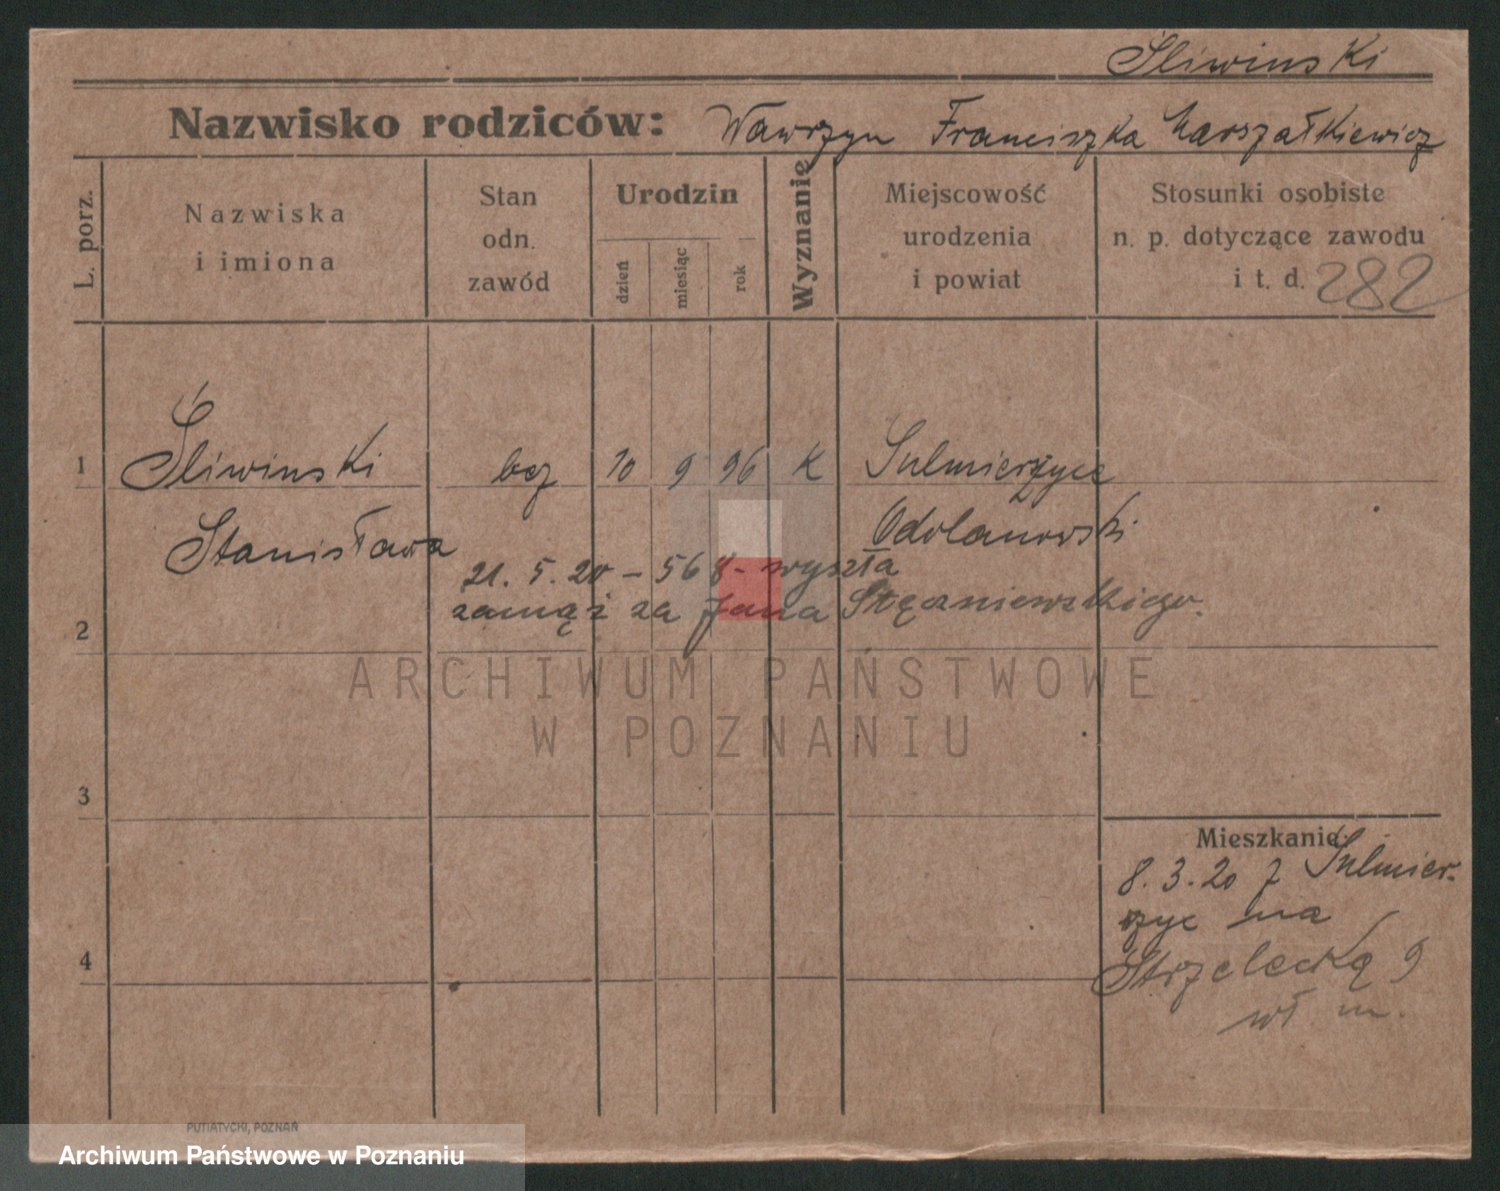 Śliwinski
Nazwisko rodziców: Wawrzyn Franciszka Marszałkiewicz
L. porz.
Nazwiska
i imiona
Stan
odn.
zawód
Urodzin
dzień
miesiąc
rok
Wyznanie
Miejscowość
urodzenia
i powiat
Stosunki osobiste
n. p. dotyczące zawodu
i t. d. 282
1 Śliwinski bez 10 9 96 K Sulmierzyce
Stanisława Odolanowski
21. 5. 20 – 568 – wyszła
zamąż za Jana Stęczniewskiego.
2
ARCHIWUM PAŃSTWOWE
W POZNANIU
3
Mieszkanie:
8. 3. 20 z Sulmier-
zyc na
4
Strzelecką 9
wł m.
PUTIATYCKI, POZNAŃ
Archiwum Państwowe w Poznaniu